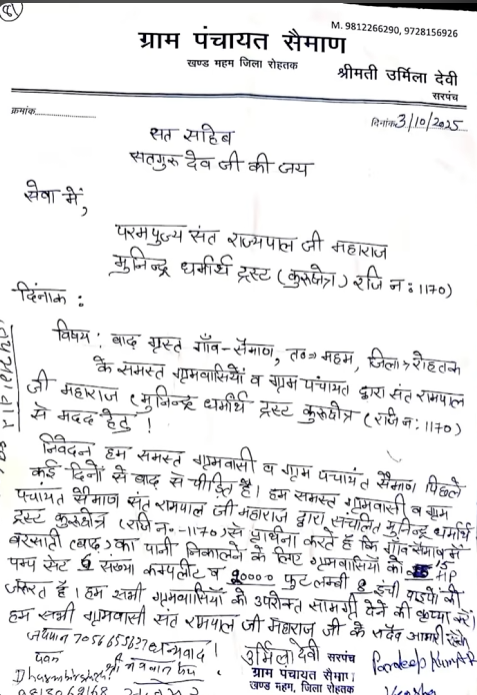 81
M. 9812266290, 9728156926
ग्राम पंचायत सैमाण
खण्ड महम जिला रोहतक
श्रीमती उर्मिला देवी
सरपंच
क्रमांक
दिनांक 3/10/2025
सत साहिब
सतगुरु देव जी की जय
सेवा में,
परमपुज्य संत राज्यपाल जी महाराज
मुनिन्द्र धर्मार्थ ट्रस्ट (कुरुक्षेत्र) रजि न : 1170)
दिनांक :
विषय : बाढ ग्रस्त गाँव - सैमाण, त० महम, जिला रोहतक
के समस्त ग्रामवासियों व ग्राम पंचायत द्वारा संत रामपाल
जी महाराज (मुनिन्द्र धर्मार्थ ट्रस्ट कुरुक्षेत्र (राजि न : 1170)
से मदद हेतु !
निवेदन हम समस्त ग्रामवासी व ग्राम पंचायत सैमाण पिछले
कई दिनों से बाढ से पीड़ित है। हम समस्त ग्रामवासी व ग्राम
पंचायत सैमाण संत रामपाल जी महाराज द्वारा संचालित मुनिन्द्र धर्मार्थ
ट्रस्ट कुरुक्षेत्र (राजि न.- 1170) से प्रार्थना करते है कि गाँव सैमाण में
बरसाती (बाढ) का पानी निकालने के लिए ग्रामवासियों को 15 HP
पम्प सेट संख्या कम्पलीट व 20000 फुट लम्बी 8 इंची पाइपों की
जरुरत है। हम सभी ग्रामवासियों को उपरोक्त सामग्री देने की कृप्या करें।
हम सभी ग्रामवासी संत रामपाल जी महाराज जी के सदैव आभारी रहेंगे
जयपाल 7056655637 धन्यवाद !
उर्मिला देवी सरपंच
ग्राम पंचायत सैमाण
खण्ड महम, जिला रोहतक
Pardeep Kumar